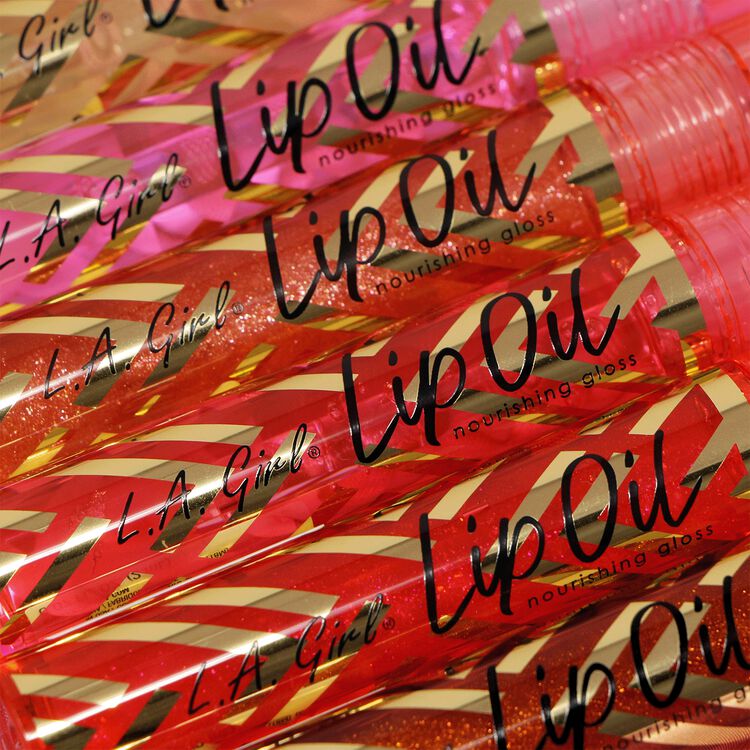 L.A. Girl®
Lip Oil
nourishing gloss
L.A. Girl®
Lip Oil
nourishing gloss
L.A. Girl®
Lip Oil
nourishing gloss
L.A. Girl®
Lip Oil
nourishing gloss
L.A. Girl®
Lip Oil
nourishing gloss